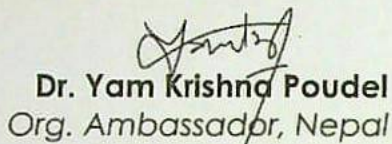 Dr. Yam Krishna Poudel
Org. Ambassador, Nepal